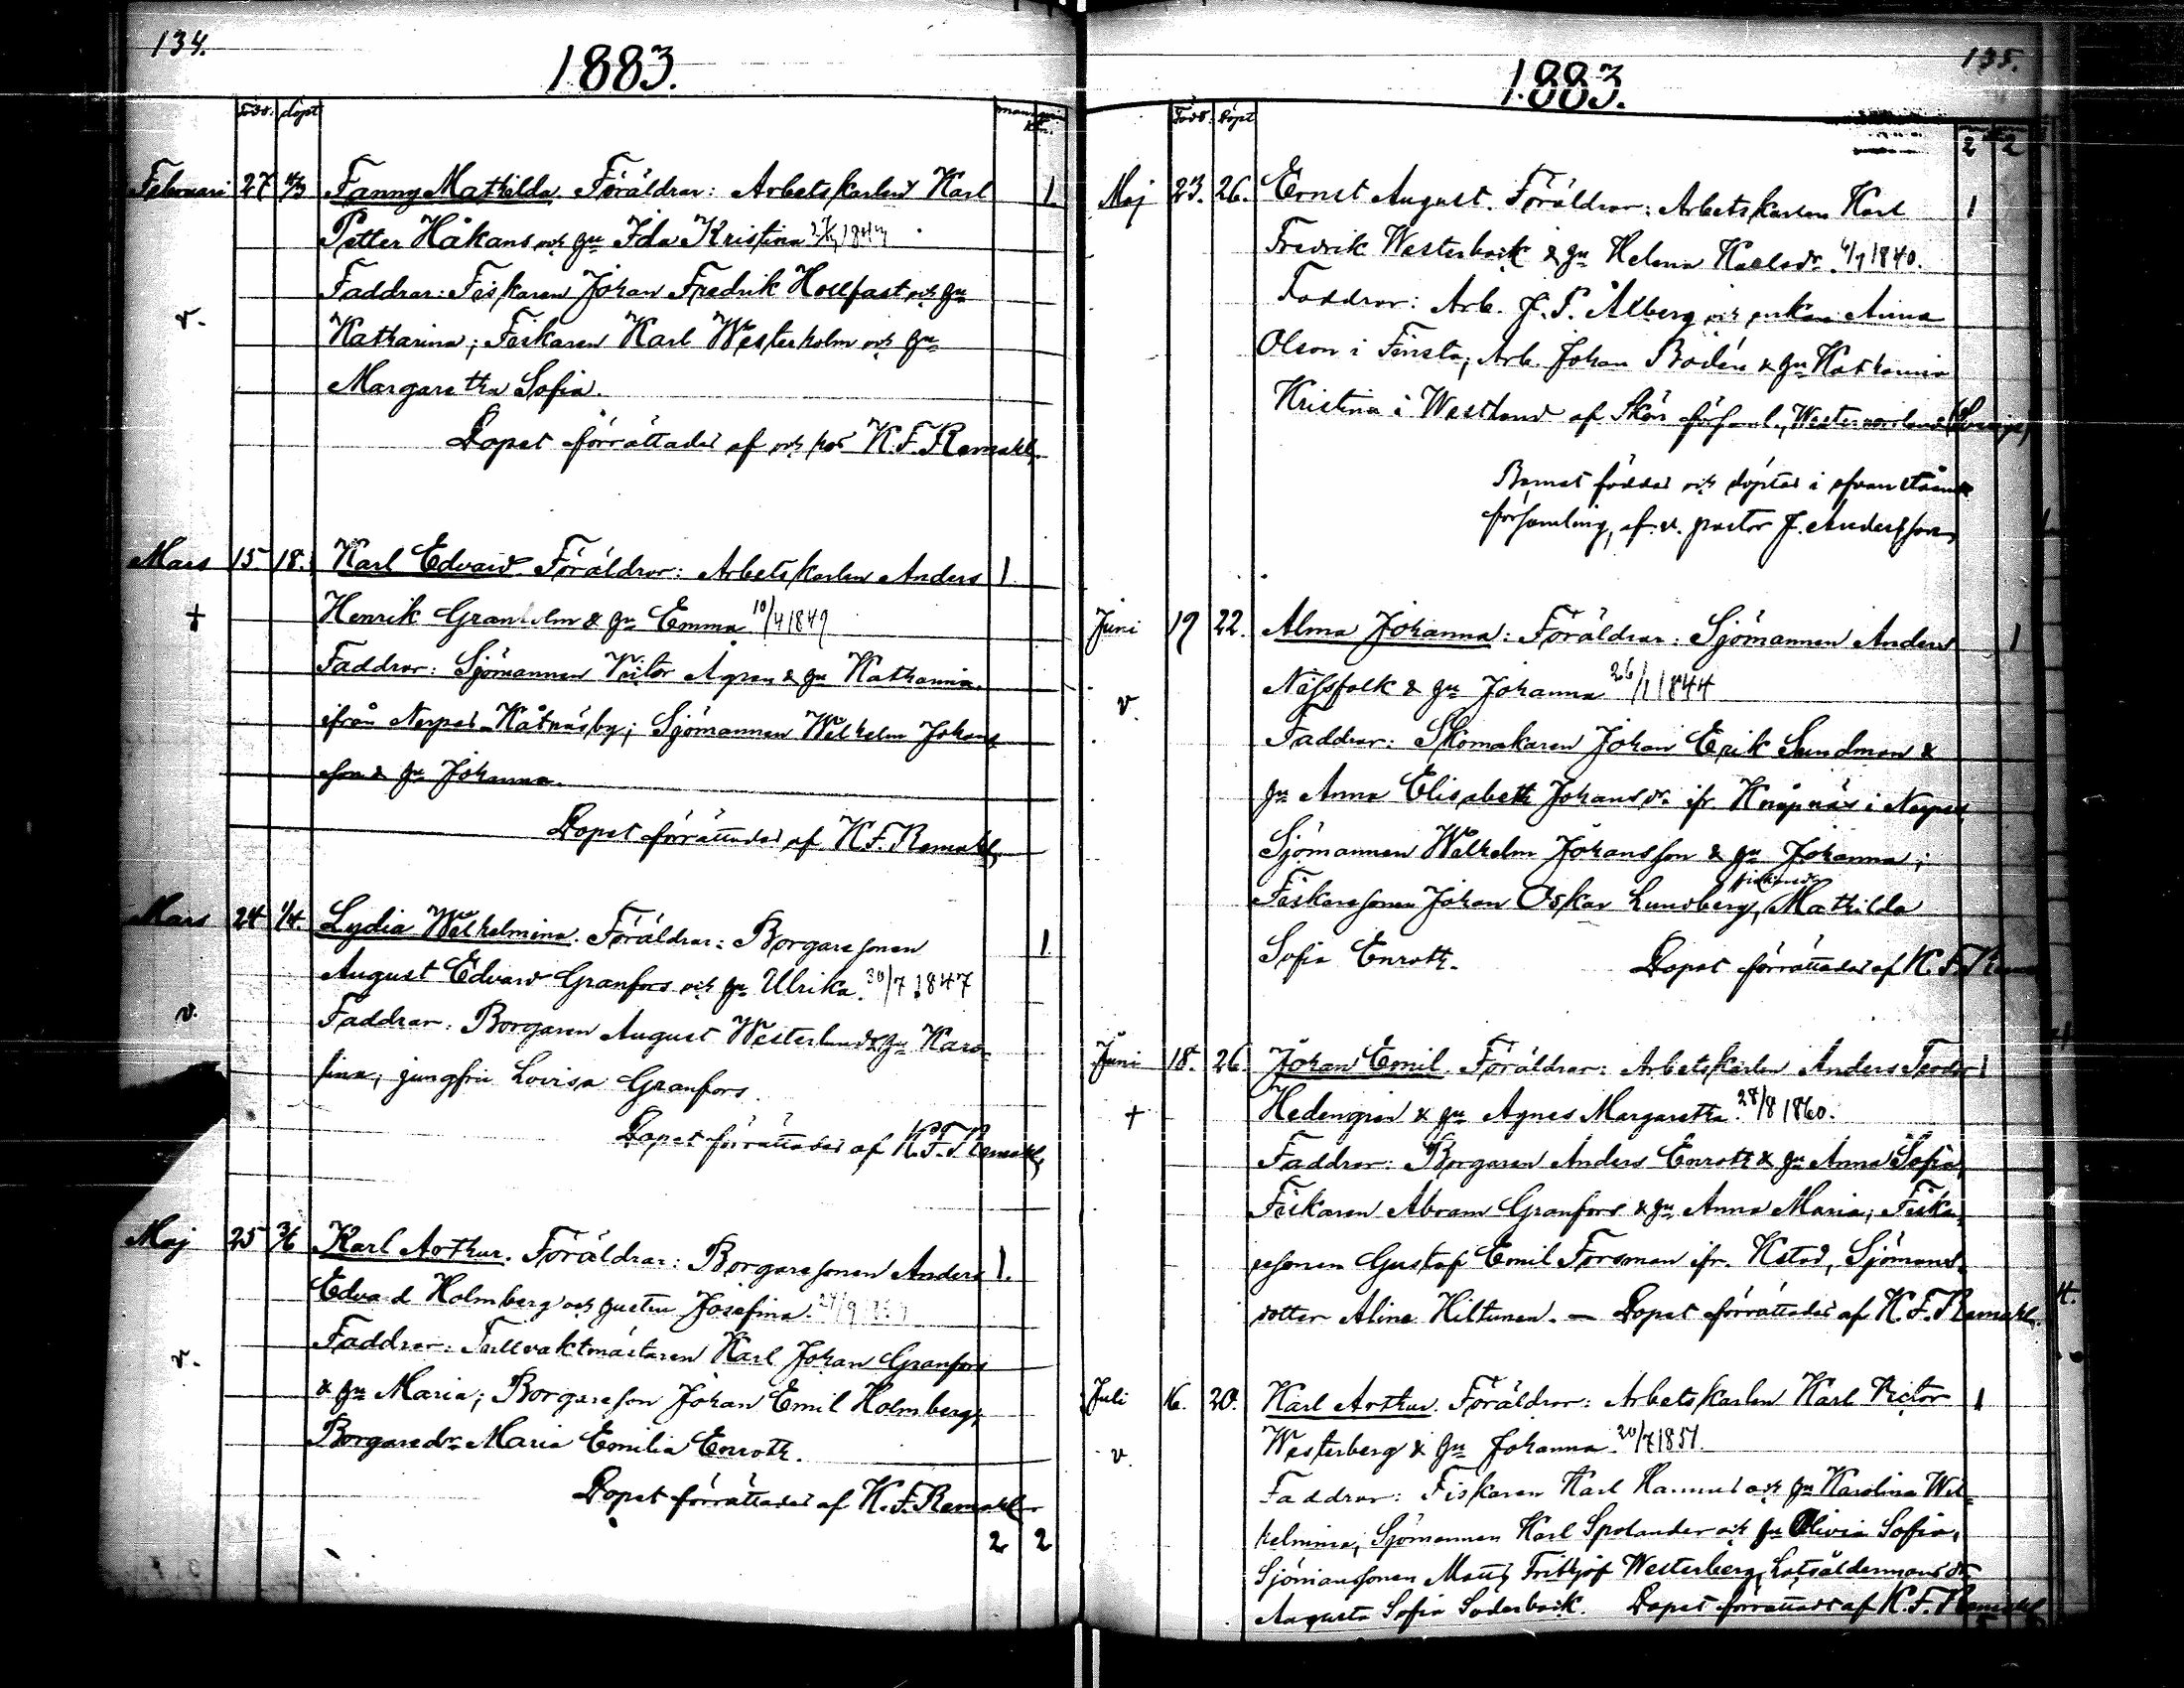 134.
1883.
Född. döpt
Februari 27 Fanny Mathilda. Föräldrar: Arbetskarlen Karl 1.
Petter Håkans och hu Ida Kristina
Faddrar: Fiskaren Johan Fredrik Hollfast och hu
v.
Katharina; Fiskaren Karl Westerholm och hu
Margaretha Sofia.
Dopet förrättades af och hos K.F. Remahl.
Mars 15 18. Karl Edvard. Föräldrar: Arbetskarlen Anders 1
+ Henrik Granholm & hu Emma 10/4 1849
Faddrar: Sjömannen Viktor Ågren & hu Katharina
ifrån Nerpes Kåtnäsby; Sjömannen Wilhelm Johans
son & hu Johanna.
Dopet förrättades af K.F. Remahl.
Mars 24 1/4. Lydia Wilhelmina. Föräldrar: Borgaresonen 1
August Edvard Granfors och hu Ulrika. 30/7 1847
v. Faddrar: Borgaren August Westerlund & hu Karo-
lina; jungfru Lovisa Granfors.
Dopet förrättades af K.F. Remahl.
Maj 25 3/6 Karl Arthur. Föräldrar: Borgaresonen Anders 1.
Edvard Holmberg och hustru Josefina.
v. Faddrar: Tullvaktmästaren Karl Johan Granfors
& hu Maria; Borgareson Johan Emil Holmberg;
Borgaredr Maria Emilia Enroth.
Dopet förrättades af K.F. Remahl.
2 2
135.
1883.
Född. Döpt
2 2
Maj 23. 26. Ernst August. Föräldrar: Arbetskarlen Karl 1
Fredrik Westerback & hu Helena Karlsdr. 1840.
Faddrar: Arb. J.P. Ålberg och enkan Anna
Olson i Finsta; Arb. Johan Bodén & hu Katharina
Kristina i Westland af Skön församl., Westernorrland (Sverige)
Barnet föddes och döptes i ofvanstående
församling, af v. pastor J. Andersson,
Juni 19 22. Alma Johanna: Föräldrar: Sjömannen Anders 1
v. Nissfolk & hu Johanna 26/1 1844
Faddrar: Skomakaren Johan Erik Sundman &
hu Anna Elisabeth Johansdr. ifr. Knåpnäs i Nerpes
Sjömannen Wilhelm Johansson & hu Johanna;
Fiskaresonen Johan Oskar Lundberg, Mathilda
Sofia Enroth. Dopet förrättades af K.F. Rema
Juni 18. 26. Johan Emil. Föräldrar: Arbetskarlen Anders Teodor 1
+ Hedengren & hu Agnes Margaretha. 28/8 1860.
Faddrar: Borgaren Anders Enroth & hu Anna Sofia,
Fiskaren Abram Granfors & hu Anna Maria; Fiska-
resonen Gustaf Emil Forsman ifr. Kstad, Sjömans-
dotter Aline Hiltunen. — Dopet förrättades af K.F. Remahl.
Juli 16. 20. Karl Arthur. Föräldrar: Arbetskarlen Karl Victor 1
v. Westerberg & hu Johanna. 20/7 1851.
Faddrar: Fiskaren Karl Hannus och hu Karolina Wil-
helmina; Sjömannen Karl Spolander och hu Olivia Sofia,
Sjömanssonen Matts Frithjof Westerberg, Lotsåldermansdr
Augusta Sofia Söderback. Dopet förrättades af K.F. Remahl